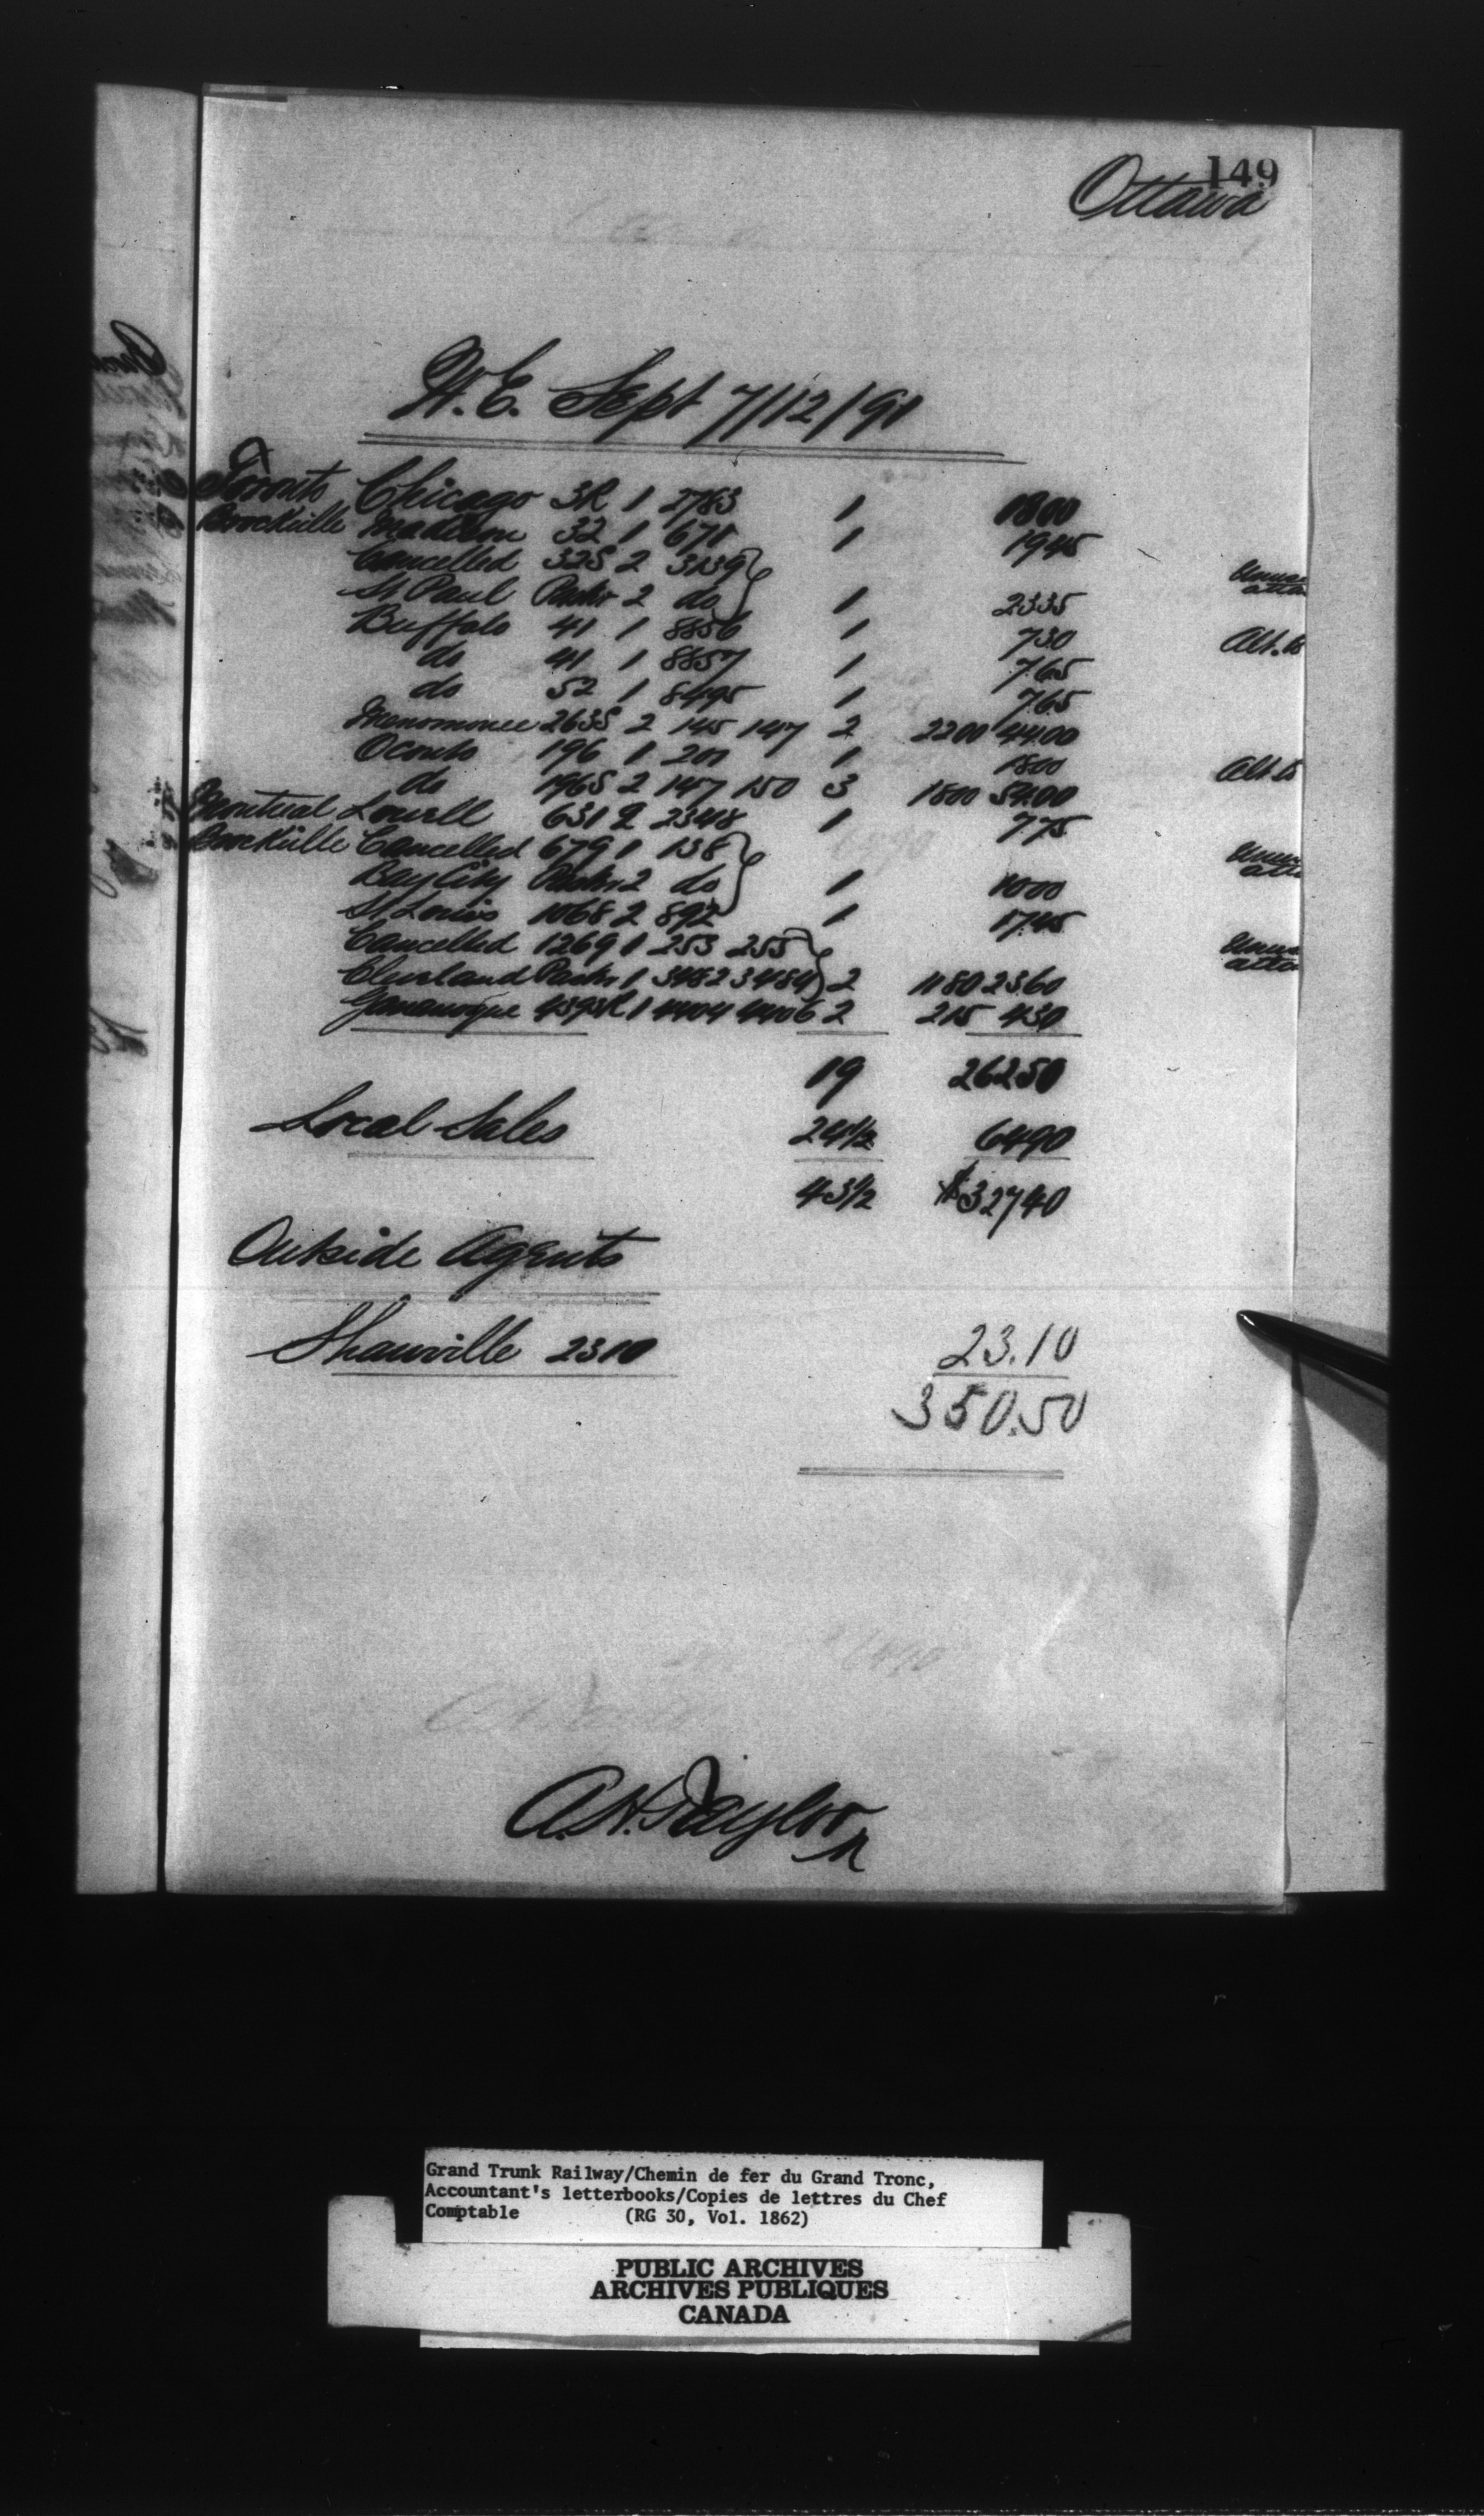 149
Ottawa
W.E. Sept 7/12/91
Toronto Chicago 3R 1 2783 1 1800
Brockville Madison 32 1 671 1 1945
Cancelled 325 2 3139
St Paul 2 do 1 2335
Buffalo 41 1 8856 1 730
do 41 1 8857 1 7.65
do 52 1 8495 1 765
Menominee 2635 2 145 147 2 2200 44.00
Oconto 196 1 201 1 1800
do 1965 2 147 150 3 1800 54.00
Montreal Lowell 631 2 2348 1 775
Brockville Cancelled 679 1 138
Bay City 2 do 1 1000
St. Louis 1068 2 892 1 1745
Cancelled 1269 1 253 255
Cleveland 1 3482 3484 2 1180 2360
Gananoque 4393R 1 4404 4406 2 215 430
19 26250
Local Sales 24½ 6490
43½ $32740
Outside Agents
Shawville 2310 23.10
350.50
A.H. Taylor
Grand Trunk Railway/Chemin de fer du Grand Tronc,
Accountant's letterbooks/Copies de lettres du Chef
Comptable (RG 30, Vol. 1862)
PUBLIC ARCHIVES
ARCHIVES PUBLIQUES
CANADA